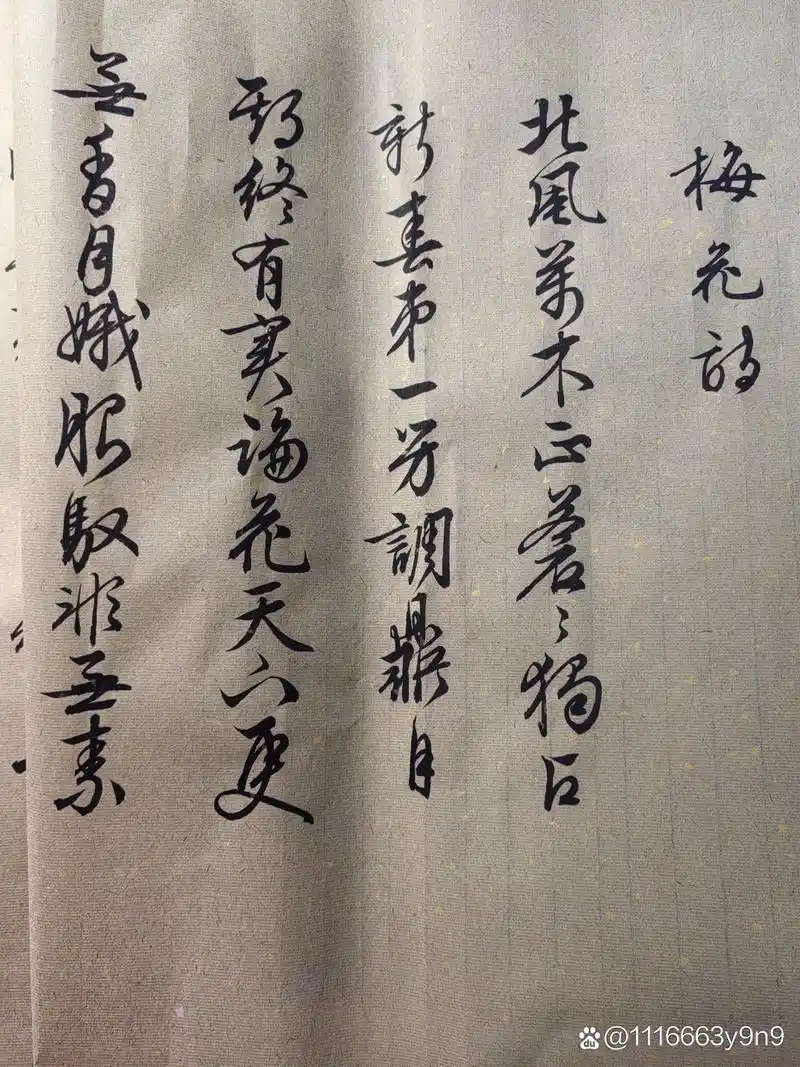 梅花詩
北風萬木正蒼々獨占
新春第一芳調鼎自
期終有実論花天下更
無香月娥服馭非無素
@1116663y9n9